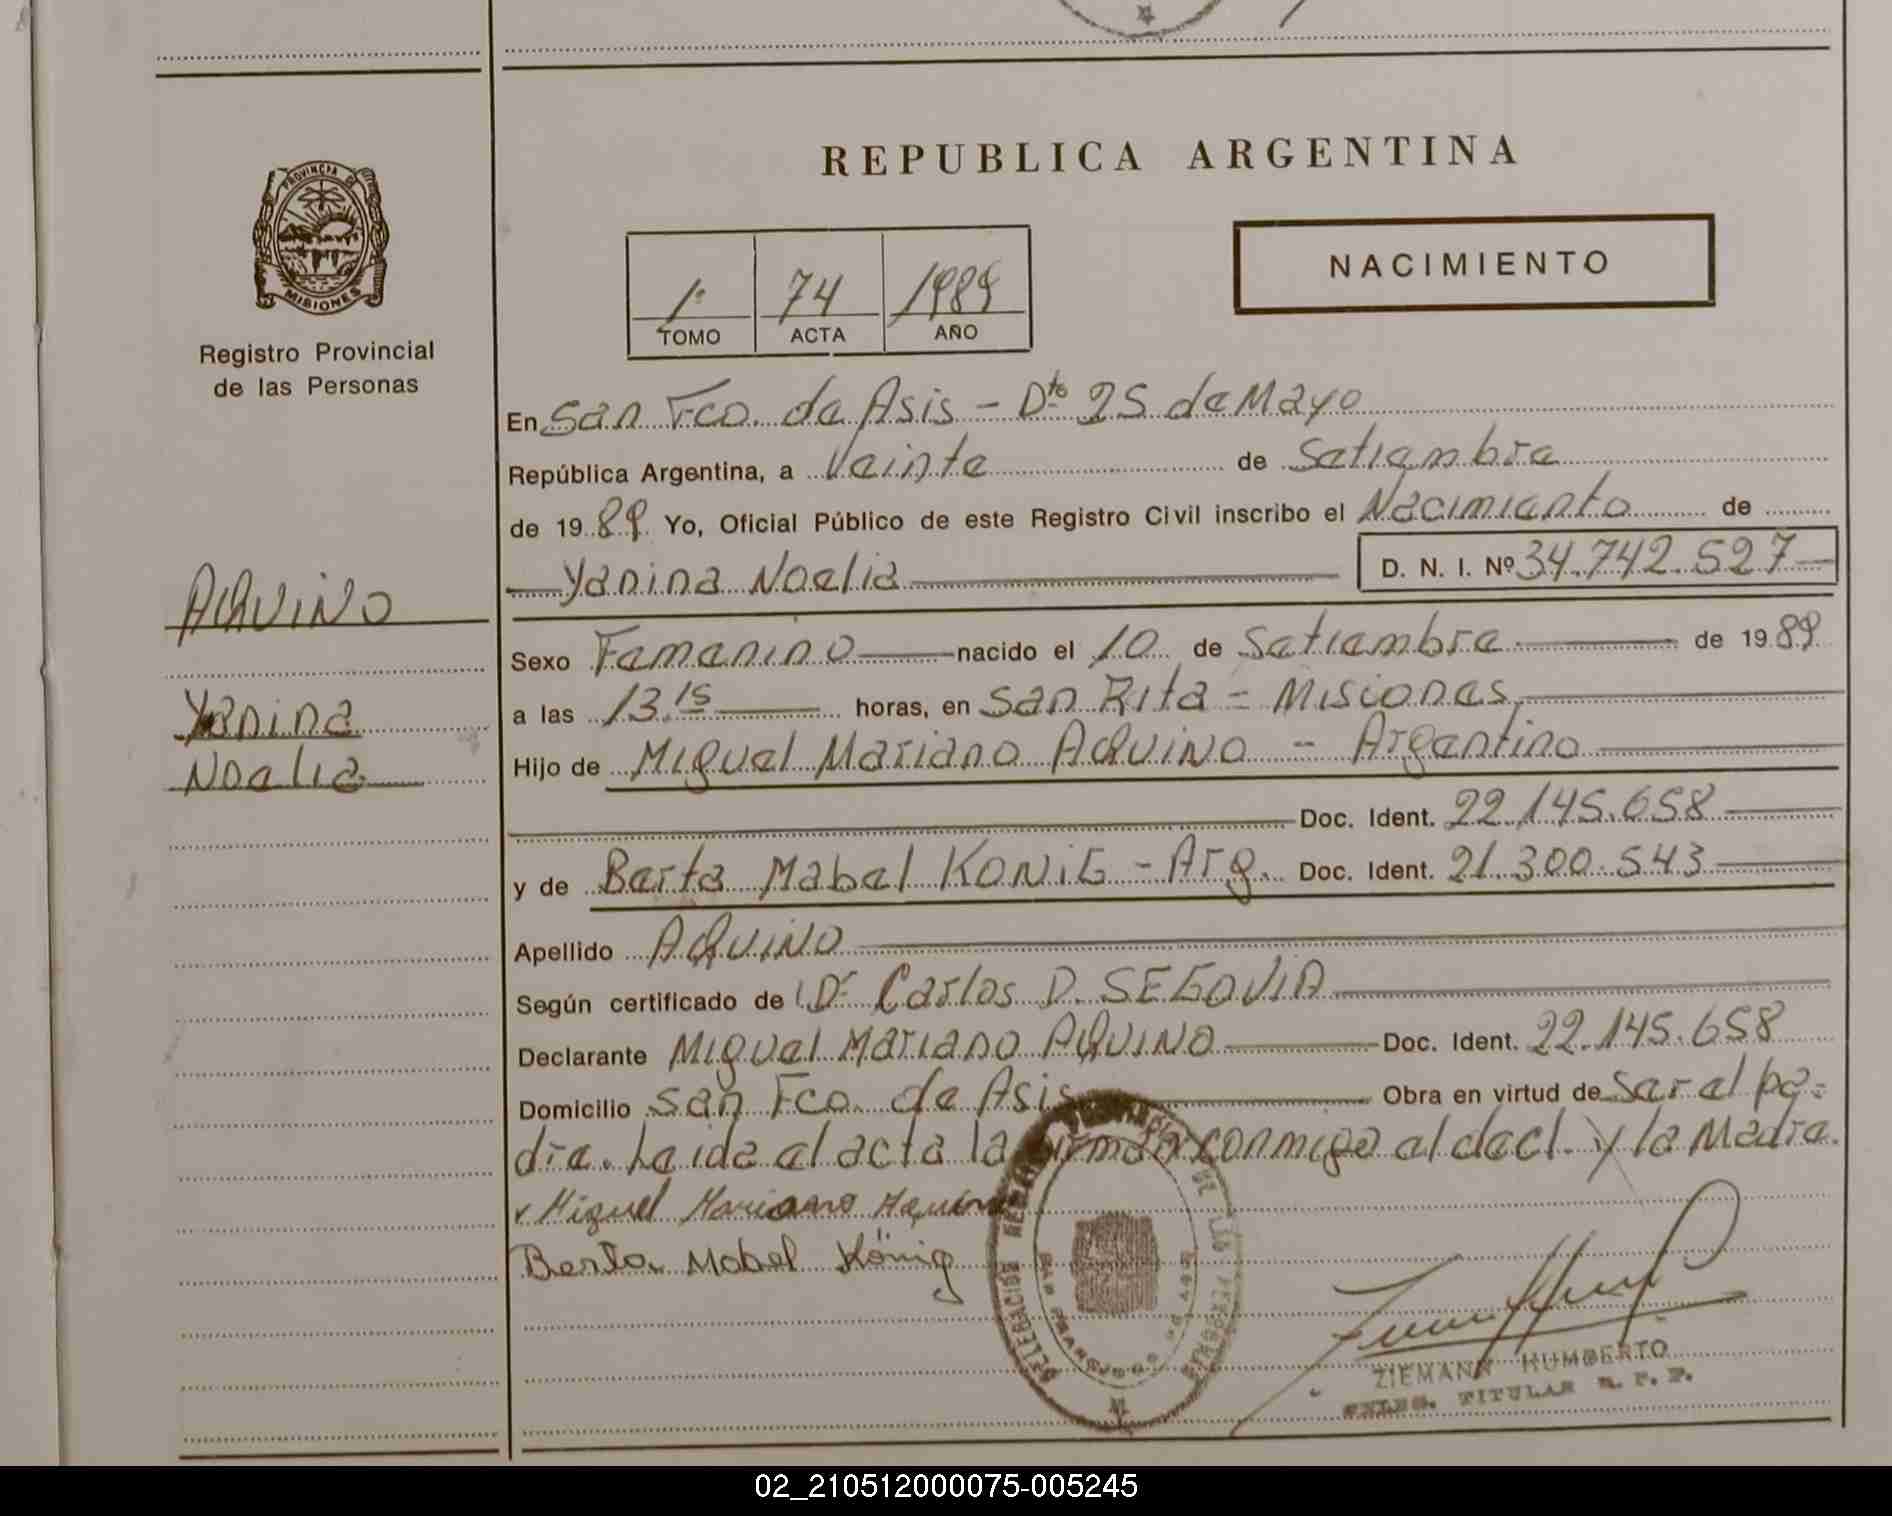 REPUBLICA ARGENTINA
PROVINCIA DE
MISIONES
Registro Provincial
de las Personas
1º 74 1989
TOMO ACTA AÑO
NACIMIENTO
En San Fco. de Asis - Dto 25 de Mayo
República Argentina, a Veinte de Setiembre
de 1989 Yo, Oficial Público de este Registro Civil inscribo el Nacimiento de
Yanina Noelia D. N. I. Nº 34.742.527
AQUINO
Yanina
Noelia
Sexo Femenino nacido el 10 de Setiembre de 1989
a las 13.15 horas, en San Rita - Misiones
Hijo de Miguel Mariano AQUINO - Argentino
Doc. Ident. 22.145.658
y de Berta Mabel KONIG - Arg. Doc. Ident. 21.300.543
Apellido AQUINO
Según certificado de Dr Carlos D. SEGOVIA
Declarante Miguel Mariano AQUINO Doc. Ident. 22.145.658
Domicilio San Fco. de Asis Obra en virtud de ser el pa-
dre. Leida el acta la firman conmigo el decl. y la Madre.
Miguel Mariano Aquino
Berta Mabel König
DELEGACION REGISTRO PROVINCIAL DE LAS PERSONAS
SAN FRANCISCO DE ASIS
ZIEMANN HUMBERTO
DELEG. TITULAR R. P. P.
02_210512000075-005245